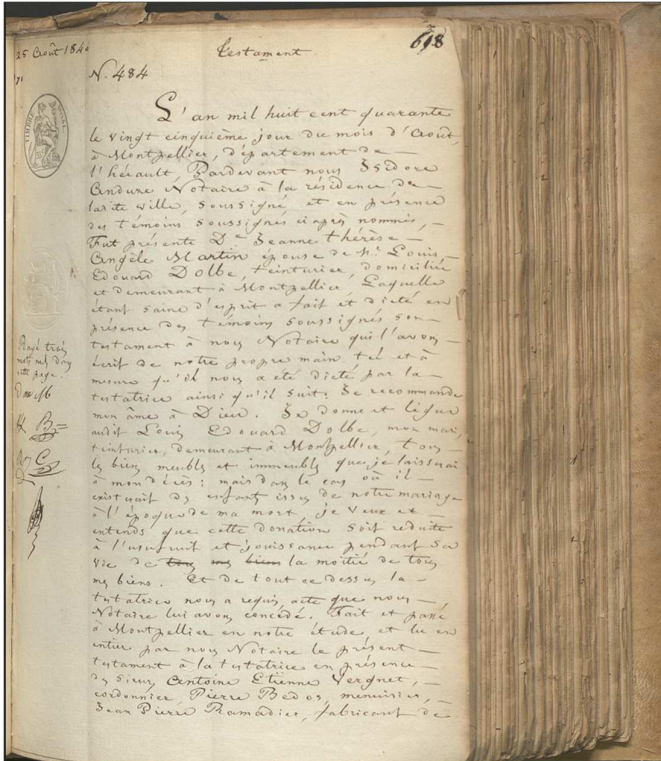 25 Août 1840
testament.
698
N. 484
L'an mil huit cent quarante
le vingt cinquième jour du mois d'Août,
à Montpellier, département de
l'hérault, Pardevant nous Isidore
Anduze Notaire à la résidence de
ladite ville, soussigné, et en présence
des témoins soussignés ci après nommés,
Fut présente De Jeanne thérèse
Angèle Martin épouse de Mr. Louis
Edouard Dolbe, teinturier, domiciliée
et demeurant à Montpellier, Laquelle
étant saine d'esprit a fait et dicté en
présence des témoins soussignés son
testament à nous Notaire qui l'avons
écrit de notre propre main tel et à
mesure qu'il nous a été dicté par la
testatrice ainsi qu'il suit: Je recommande
mon âme à Dieu. Je donne et lègue
audit Louis Edouard Dolbe, mon mari,
teinturier, demeurant à Montpellier, tous
les biens meubles et immeubles que je laisserai
à mon décès; mais dans le cas où il
existerait des enfants issus de notre mariage
à l'époque de ma mort je veux et
entends que cette donation soit réduite
à l'usufruit et jouissance pendant sa
vie de tous mes biens la moitié de tous
mes biens. Et de tout ce dessus la
testatrice nous a requis acte que nous
Notaire lui avons concédé. Fait et passé
à Montpellier en notre étude, et lu en
entier par nous Notaire le présent
testament à la testatrice en présence
des sieurs Antoine Etienne Vergnet,
cordonnier, Pierre Bedos, menuisier,
Jean Pierre Ramadier, fabricant de
Rayé trois
mots nuls dans
cette page.